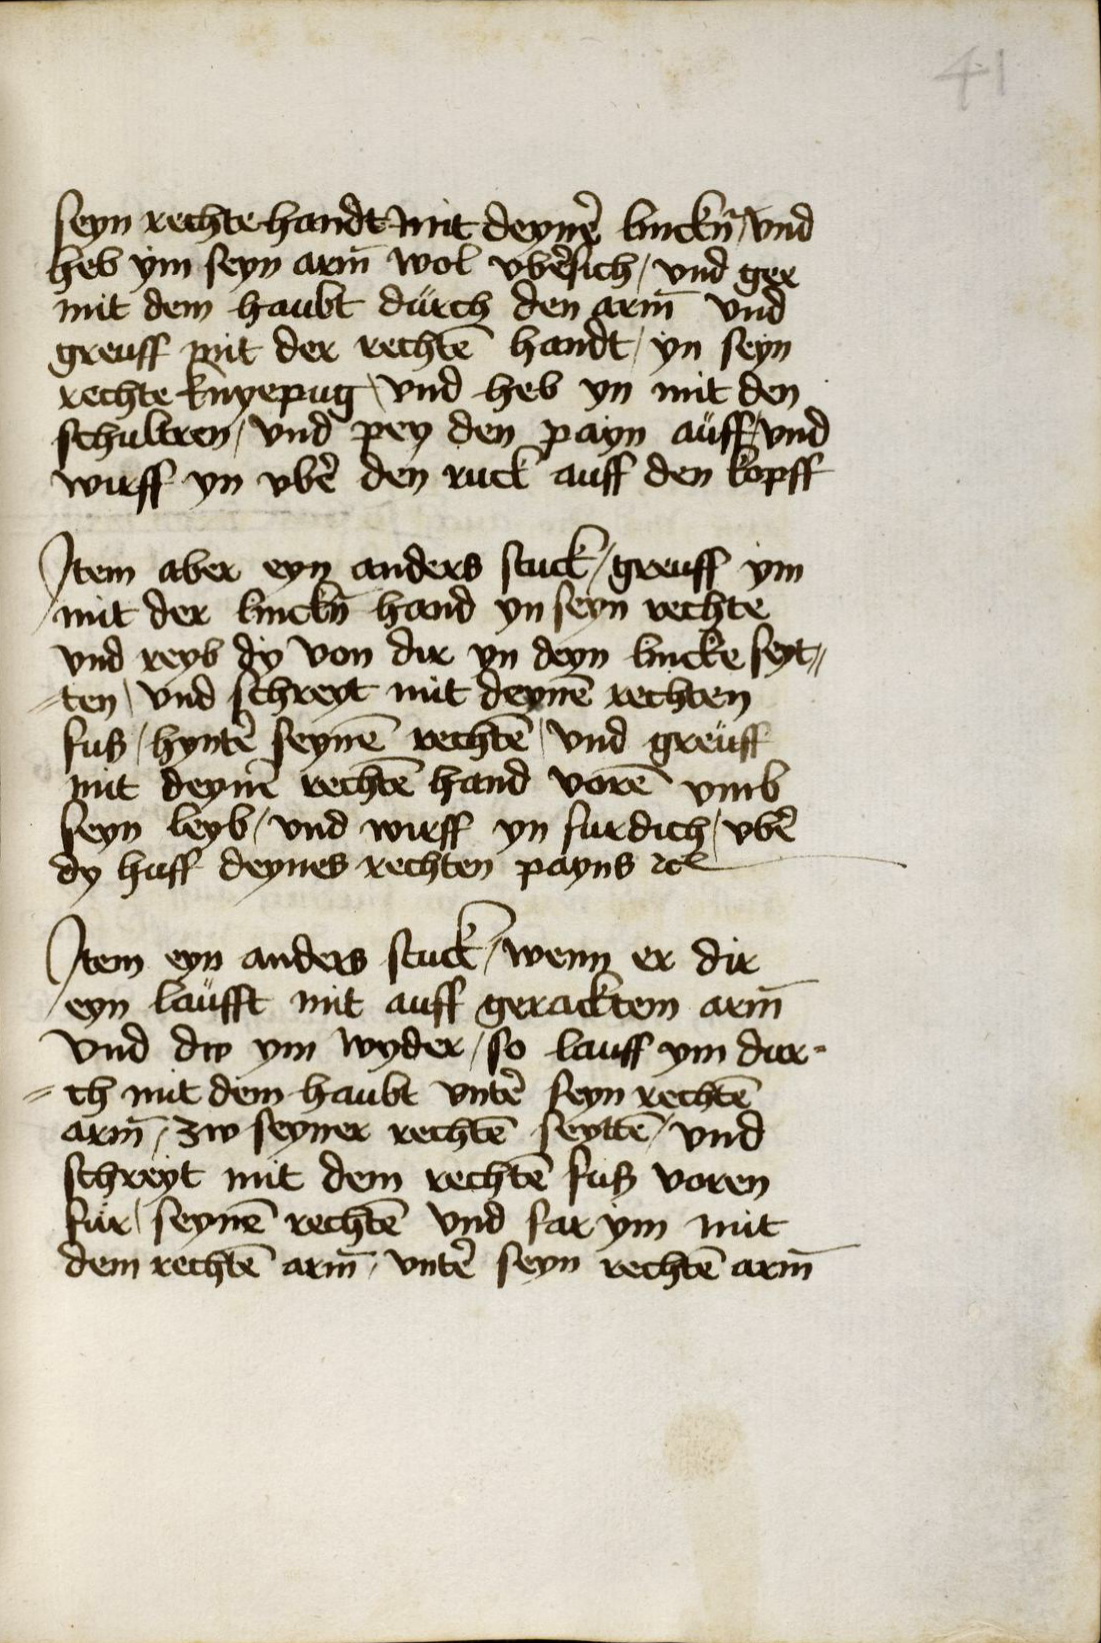 41
seyn rechte handt mit deyne͛ linckn̄ / vnd
heb ym seyn arm̄ wol vbe͛sich / vnd ger
mit dem haubt dürch den arm̄ vnd
greuff mit der rechtē handt / yn seyn
rechte knyepug / vnd heb yn mit den
schultren / vnd pey den payn aüff / vnd
wirff yn vbe͛ den ruck auff den kopff
Item aber eyn anders stuck / greuff ym
mit der linckn̄ hand yn seyn rechte
vnd reyb dy von dir yn deyn lincke seyt〃
⸗ten / vnd schreyt mit deynē rechten
fuß / hynte͛ seynē rechtē / vnd greüff
mit deyne͛ rechtē hand vorē vmb
seyn leyb / vnd wirff yn fur dich / vbe͛
dy huff deynes rechten payns ꝛcͤ
Item eyn anders stuck / wenn er dir
eyn laüfft mit auff geracktem arm̄
vnd dw ym wyder / so lauff ym dur⸗
⸗ch mit dem haubt vnte͛ seyn rechtē
arm̄ / zw seyner rechtē seyttē / vnd
schreyt mit dem rechtē fuß voren
für / seynē rechtē vnd far ym mit
dem rechtē arm̄ / vnte͛ seyn rechtē arm̄